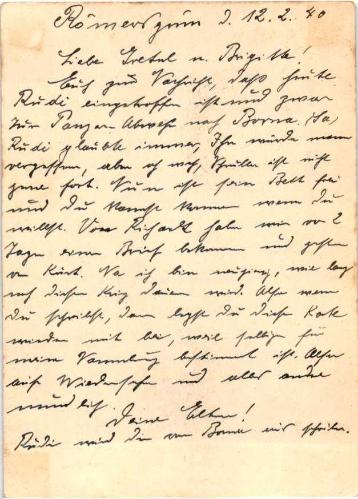 Römerszum d. 12.2.40
Liebe Gretel u. Brigitte!
Euch zur Nachricht, daß heute
Rudi eingetroffen ist und zwar
zur Panzer-Abwehr nach Borna (Sa)
Rudi glaubte immer, Ihn würde man
vergessen, aber oh weh, ist nicht
gerne fort. Nun ist sein Bett frei
und Du kannst kommen wenn du
willst. Von Richardt haben wir vor 2
Tagen einen Brief bekommen und gestern
von Kurt. Na ich bin neugierig, wie lang
noch dieser Krieg dauern wird. Also wenn
Du schreibst, dann legst du diese Karte
wieder mit bei, weil selbige für
meine Sammlung bestimmt ist. Also
auf Wiedersehen und alles andre
mündlich.
Deine Eltern!
Rudi wird dir von Borna aus schreiben.